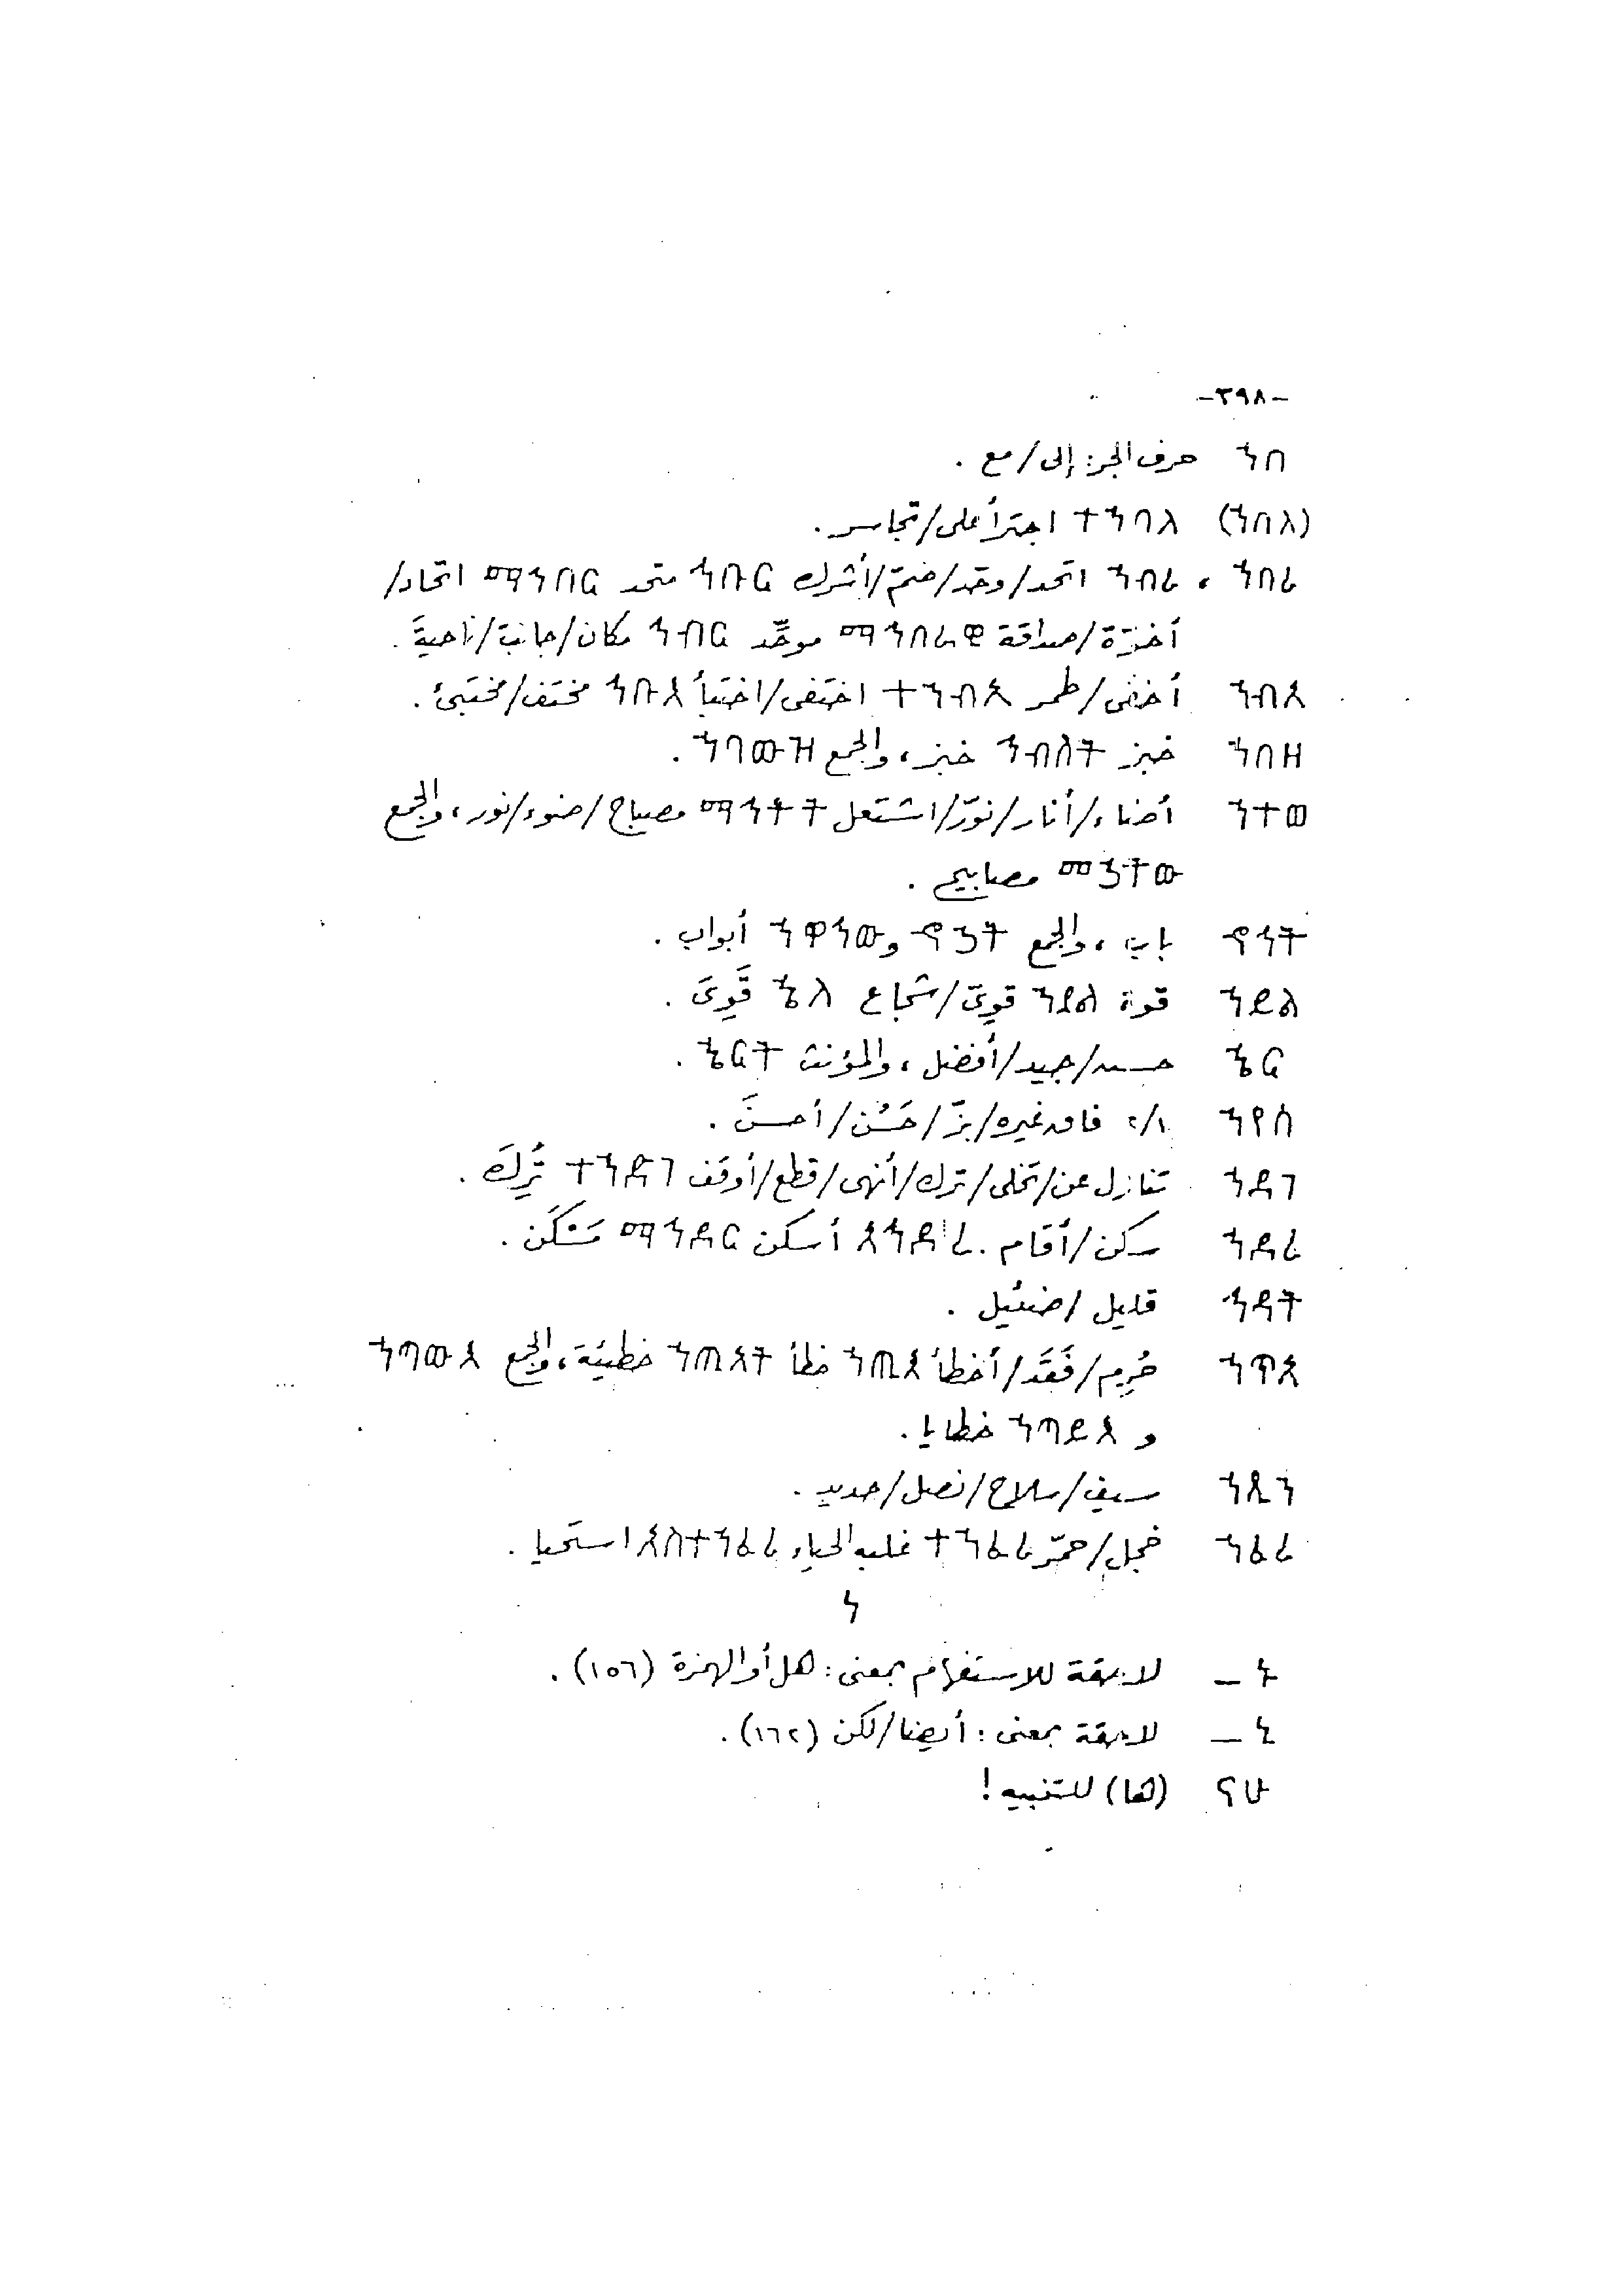 -٣٩٨-
ኀበ حرف الجر: إلى/مع .
(ኀበለ) ተኀበለ اجترأ على/تجاسر.
ኀበረ ، ኀብረ اتحد/وحّد/ضمّ/أشرك ኅቡር متحد ማኅበር اتحاد/
أخوّة/صداقة موحِّد ኀብር مكان/جانب/ناحية.
ኀብአ أخفى/طمر ተኀብአ اختفى/اختبأ ኅቡእ مختف/مختبئ.
ኀበዘ خبز ኅብስት خبز، والجمع ኀባውዝ .
ኀተወ أضاء/أنار/نوّر/اشتعل ማኅቶት مصباح/ضوء/نور، والجمع
መኃትው مصابيح .
ኆኅት باب، والجمع ኆኃት و أبواب .
ኀይል قوة ኀያል قويّ/شجاع ኄለ قَوِيَ .
ኄር حسن/جيد/أفضل، والمؤنث ኄርት .
ኀየሰ ٢/١ فاق غيره/بزّ/حَسُن/أحسنَ .
ኀደገ تنازل عن/تخلى/ترك/أنهى/قطع/أوقف ተኀድገ تُرِكَ .
ኀደረ سكن/أقام . አኅደረ أسكن ማኅደር مَسْكَن .
ኅዳጥ قليل/ضئيل .
ኀጥአ حُرِم/فَقَد/أخطأ ኃጥእ خطأ ኀጢአት خطيئة، والجمع ኀጣውእ
و ኀጣይእ خطايا.
ኀፂን سيف/سلاح/نصل/حديد .
ኀፍረ خجل/حمّر ተኀፍረ غلبه الحياء አስተኀፈረ استحيا .
ነ
ኑ – لاحقة للاستفهام بمعنى: هل أو الهمزة (١٥٦) .
ኒ – لاحقة بمعنى: أيضا/لكن (١٦٢) .
ነዋ (ها) للتنبيه!